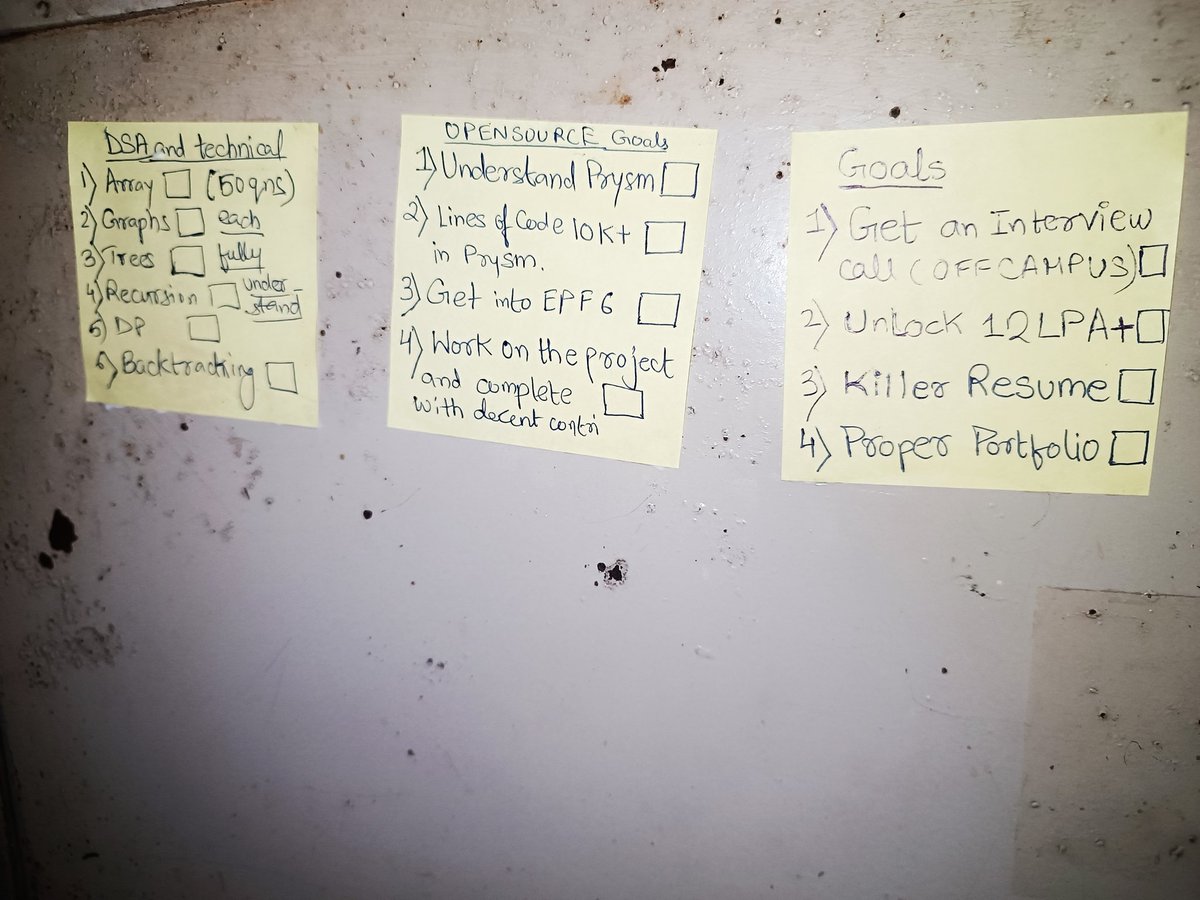 DSA and technical
1) Array (50 qns)
2) Graphs each
3) Trees fully
4) Recursion under-
stand
5) DP
6) Backtracking
OPENSOURCE Goals
1) Understand Prysm
2) Lines of Code 10K+
in Prysm.
3) Get into EPF 6
4) Work on the project
and complete
with decent contri
Goals
1) Get an Interview
call (OFFCAMPUS)
2) Unlock 12LPA+
3) Killer Resume
4) Proper Portfolio